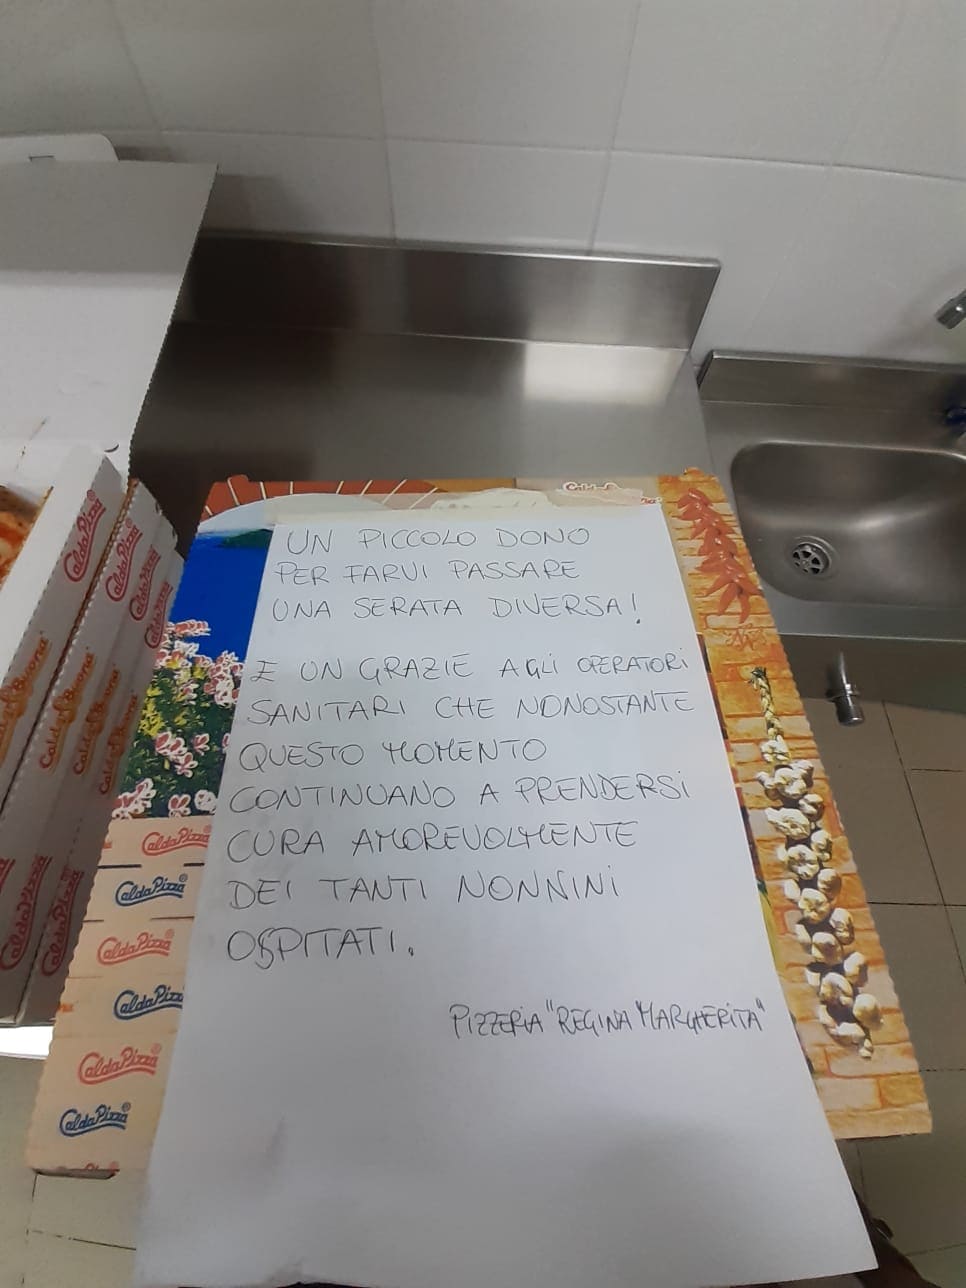 UN PICCOLO DONO
PER FARVI PASSARE
UNA SERATA DIVERSA!
E UN GRAZIE AGLI OPERATORI
SANITARI CHE NONOSTANTE
QUESTO MOMENTO
CONTINUANO A PRENDERSI
CURA AMOREVOLMENTE
DEI TANTI NONNINI
OSPITATI.
PIZZERIA "REGINA MARGHERITA"
CaldaPizza
CaldaPizza
CaldaPizza
CaldaPizza
CaldaPizza
CaldaPizza
CaldaPizza
CaldaPizza
CaldaPizza
Calda&Buona
Calda&Buona
Calda&Buona